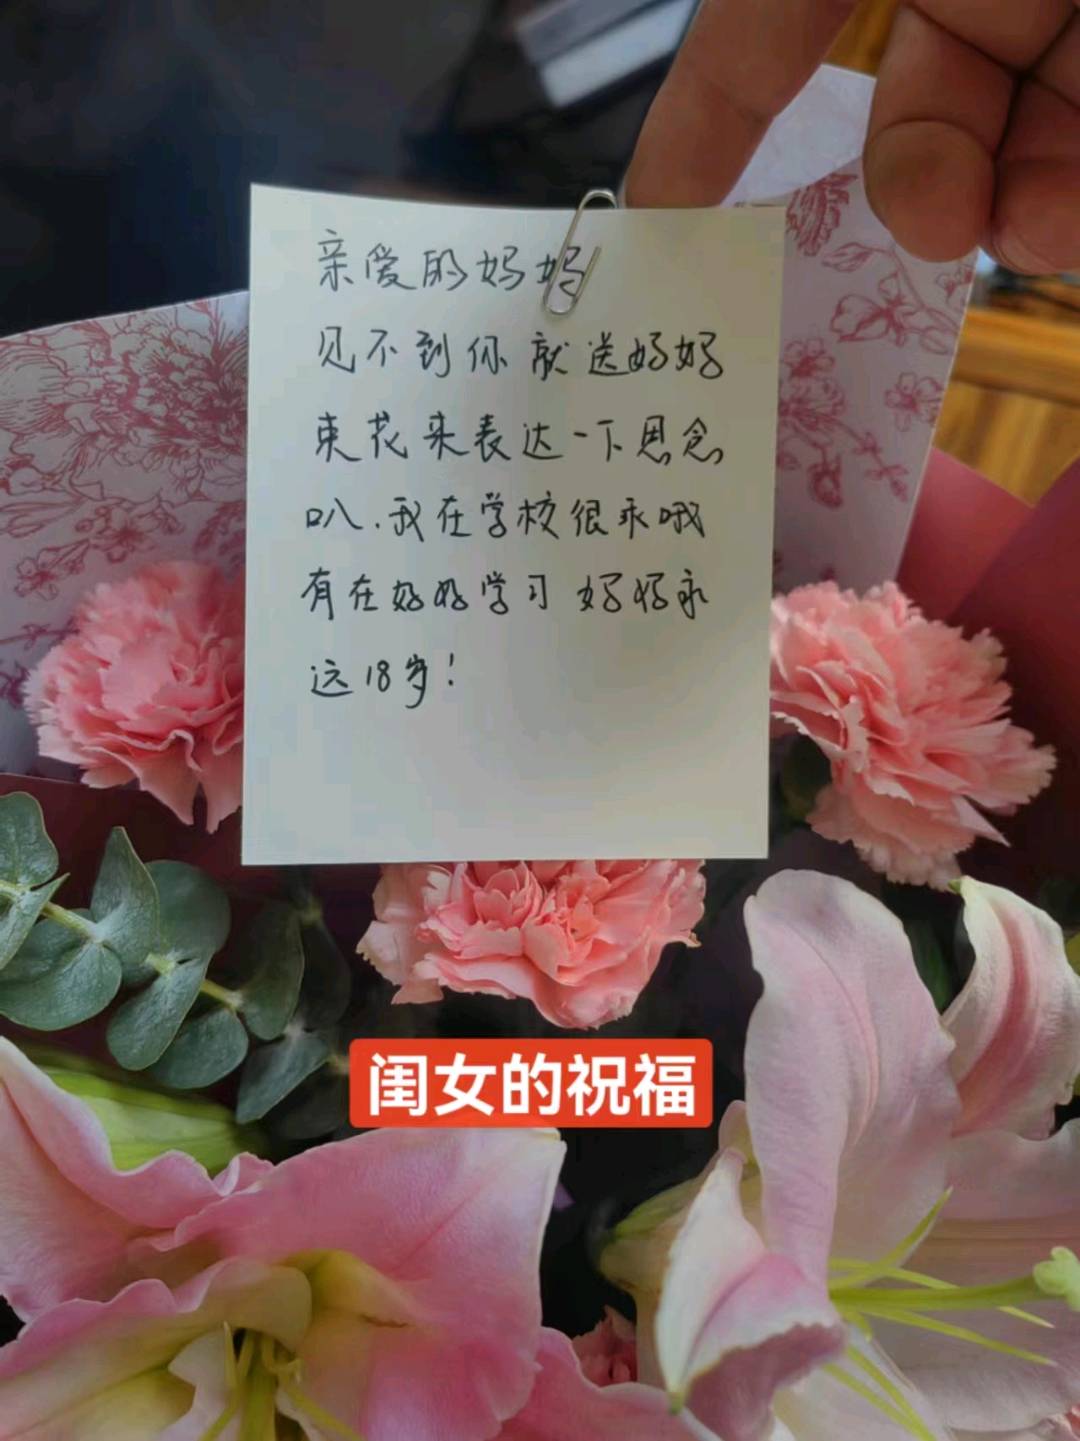 亲爱的妈妈
见不到你就送妈妈
束花来表达一下思念
叭.我在学校很乖哦
有在好好学习 妈妈永
远18岁!
闺女的祝福